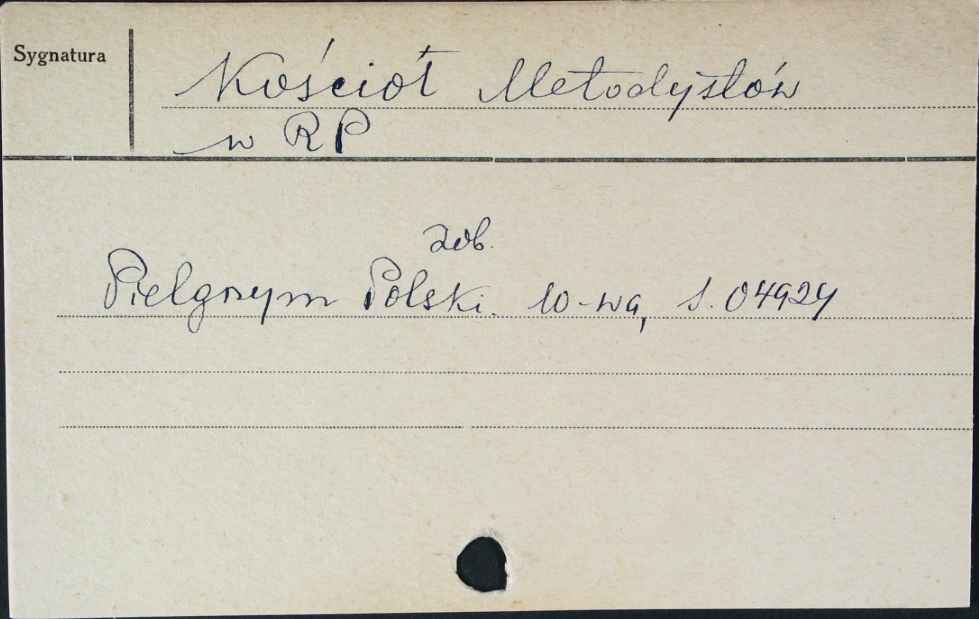 Sygnatura
Kościół Metodystów
w RP
zob.
Pielgrzym Polski. W-wa, S. 04924